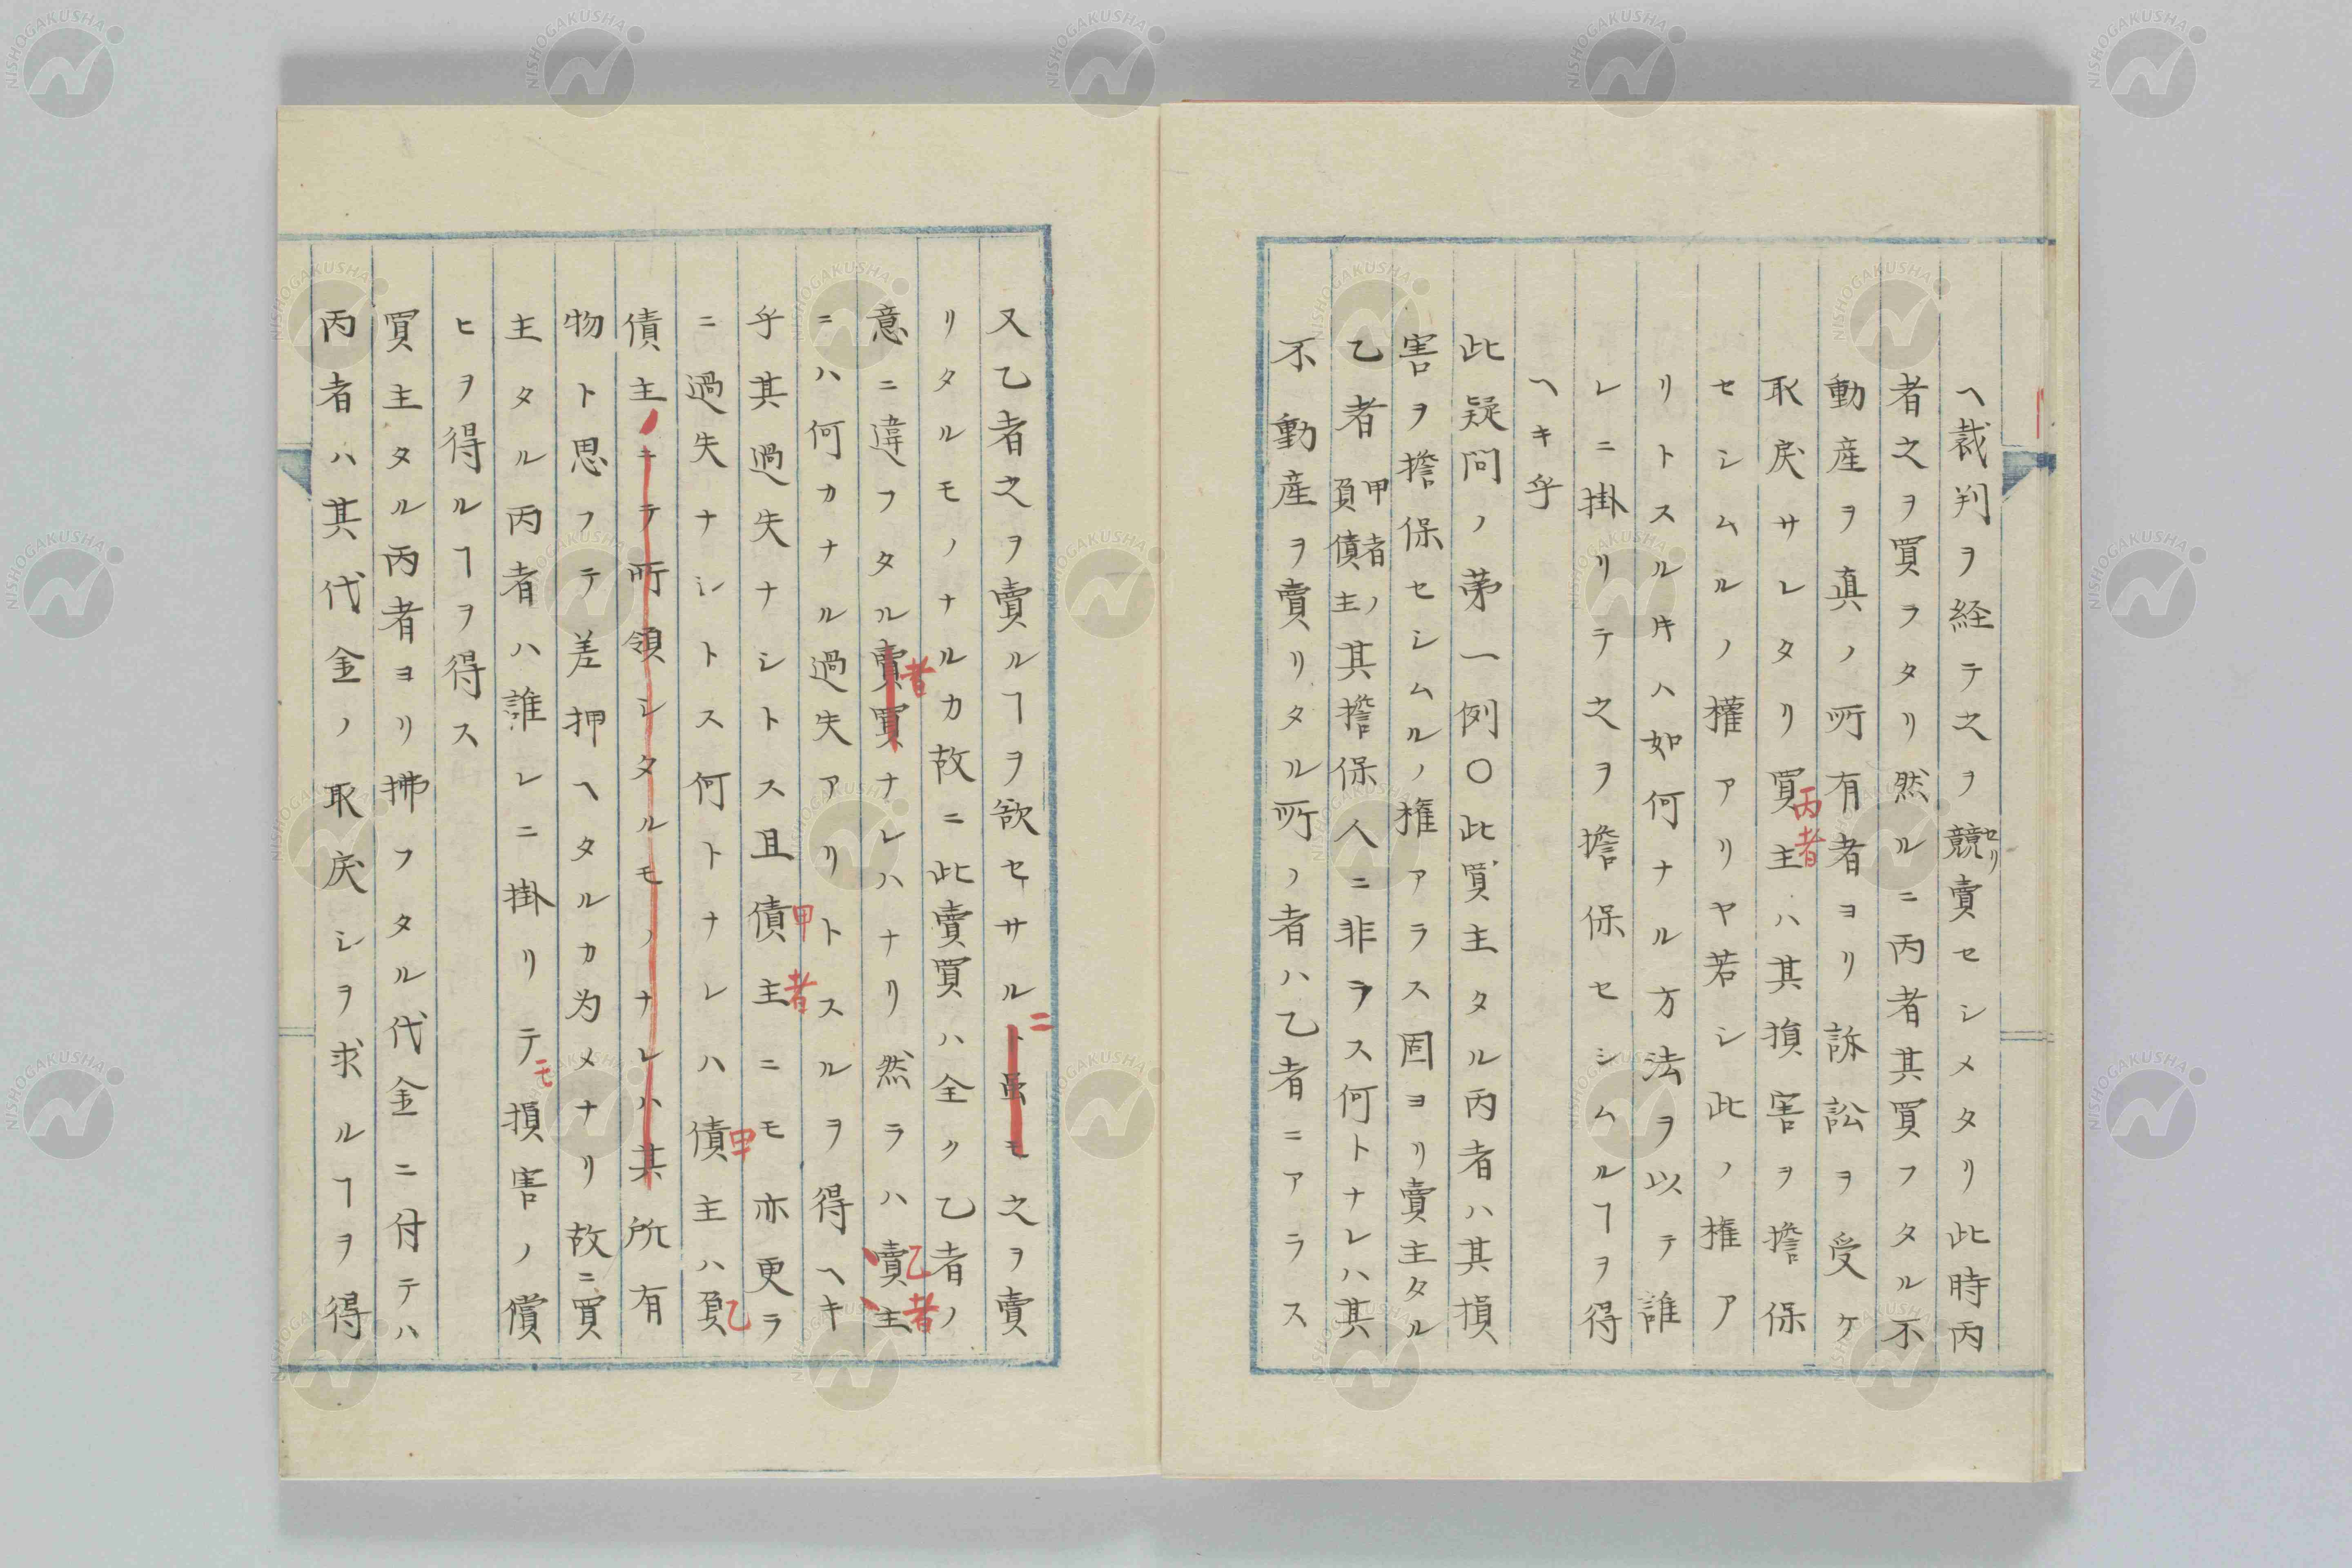 ヘ裁判ヲ経テ之ヲ競賣セシメタリ此時丙
セリ
者之ヲ買フタリ然ルニ丙者其買フタル不
動産ヲ真ノ所有者ヨリ訴訟ヲ受ケ
取戻サレタリ買主ハ其損害ヲ擔保
丙者
セシムルノ權アリヤ若シ此ノ権ア
リトスル片ハ如何ナル方法ヲ以テ誰
レニ掛リテ之ヲ擔保セシムルヿヲ得
ヘキ乎
此疑問ノ苐一例〇此買主タル丙者ハ其損
害ヲ擔保セシムルノ権アラス固ヨリ賣主タル
乙者甲者ノ負債主其擔保人ニ非ラス何トナレハ其
不動産ヲ賣リタル所ノ者ハ乙者ニアラス
又乙者之ヲ賣ルヿヲ欲セサルト虽モ之ヲ賣
ニ
リタルモノナルカ故ニ此賣買ハ全ク乙者ノ
意ニ違フタル賣買ナレハナリ然ラハ賣主
者
乙者
ニハ何カナル過失アリトスルヲ得ヘキ
乎其過失ナシトス且債主ニモ亦更ラ
甲者
ニ過失ナシトス何トナレハ債主ハ負
甲
乙
債主ノキテ所領シタルモノナレハ其所有
物ト思フテ差押ヘタルカ为メナリ故ニ買
主タル丙者ハ誰レニ掛リテ損害ノ償
モ
ヒヲ得ルヿヲ得ス
買主タル丙者ヨリ拂フタル代金ニ付テハ
丙者ハ其代金ノ取戻シヲ求ルヿヲ得
NISHOGAKUSHA